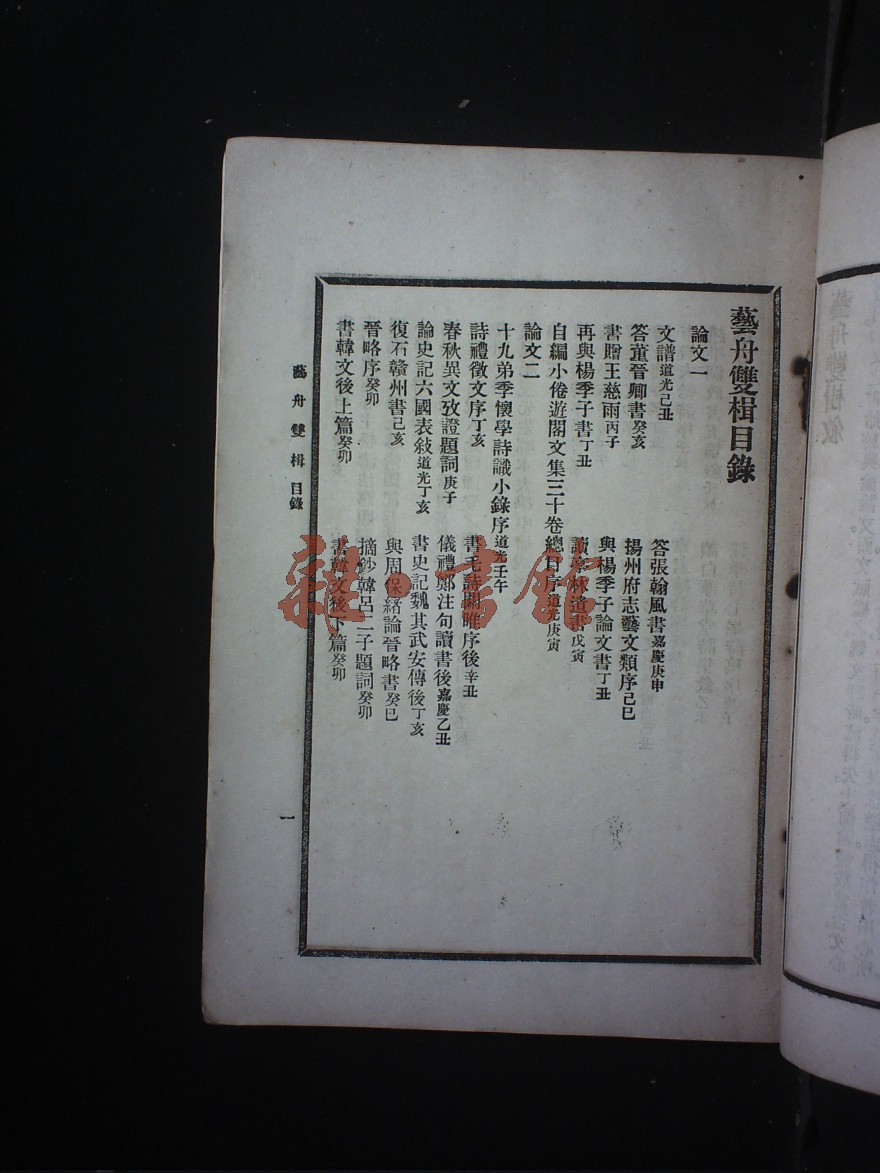 藝舟雙楫目錄
論文一
文譜道光己丑　答張翰風書嘉慶庚申
答董晉卿書癸亥　揚州府志藝文類序己巳
書贈王慈雨丙子　與楊季子論文書丁丑
再與楊季子書丁丑　讀亭林遺書戊寅
自編小倦遊閣文集三十卷總目序道光庚寅
論文二
十九弟季懷學詩識小錄序道光壬午
詩禮徵文序丁亥　書毛詩關雎序後辛丑
春秋異文攷證題詞庚子　儀禮鄭注句讀書後嘉慶乙丑
論史記六國表敍道光丁亥　書史記魏其武安傳後丁亥
復石贛州書己亥　與周保緒論晉略書癸巳
晉略序癸卯　摘鈔韓呂二子題詞癸卯
書韓文後上篇癸卯　書韓文後下篇癸卯
藝舟雙楫 目錄
一
藝舟雙楫敘